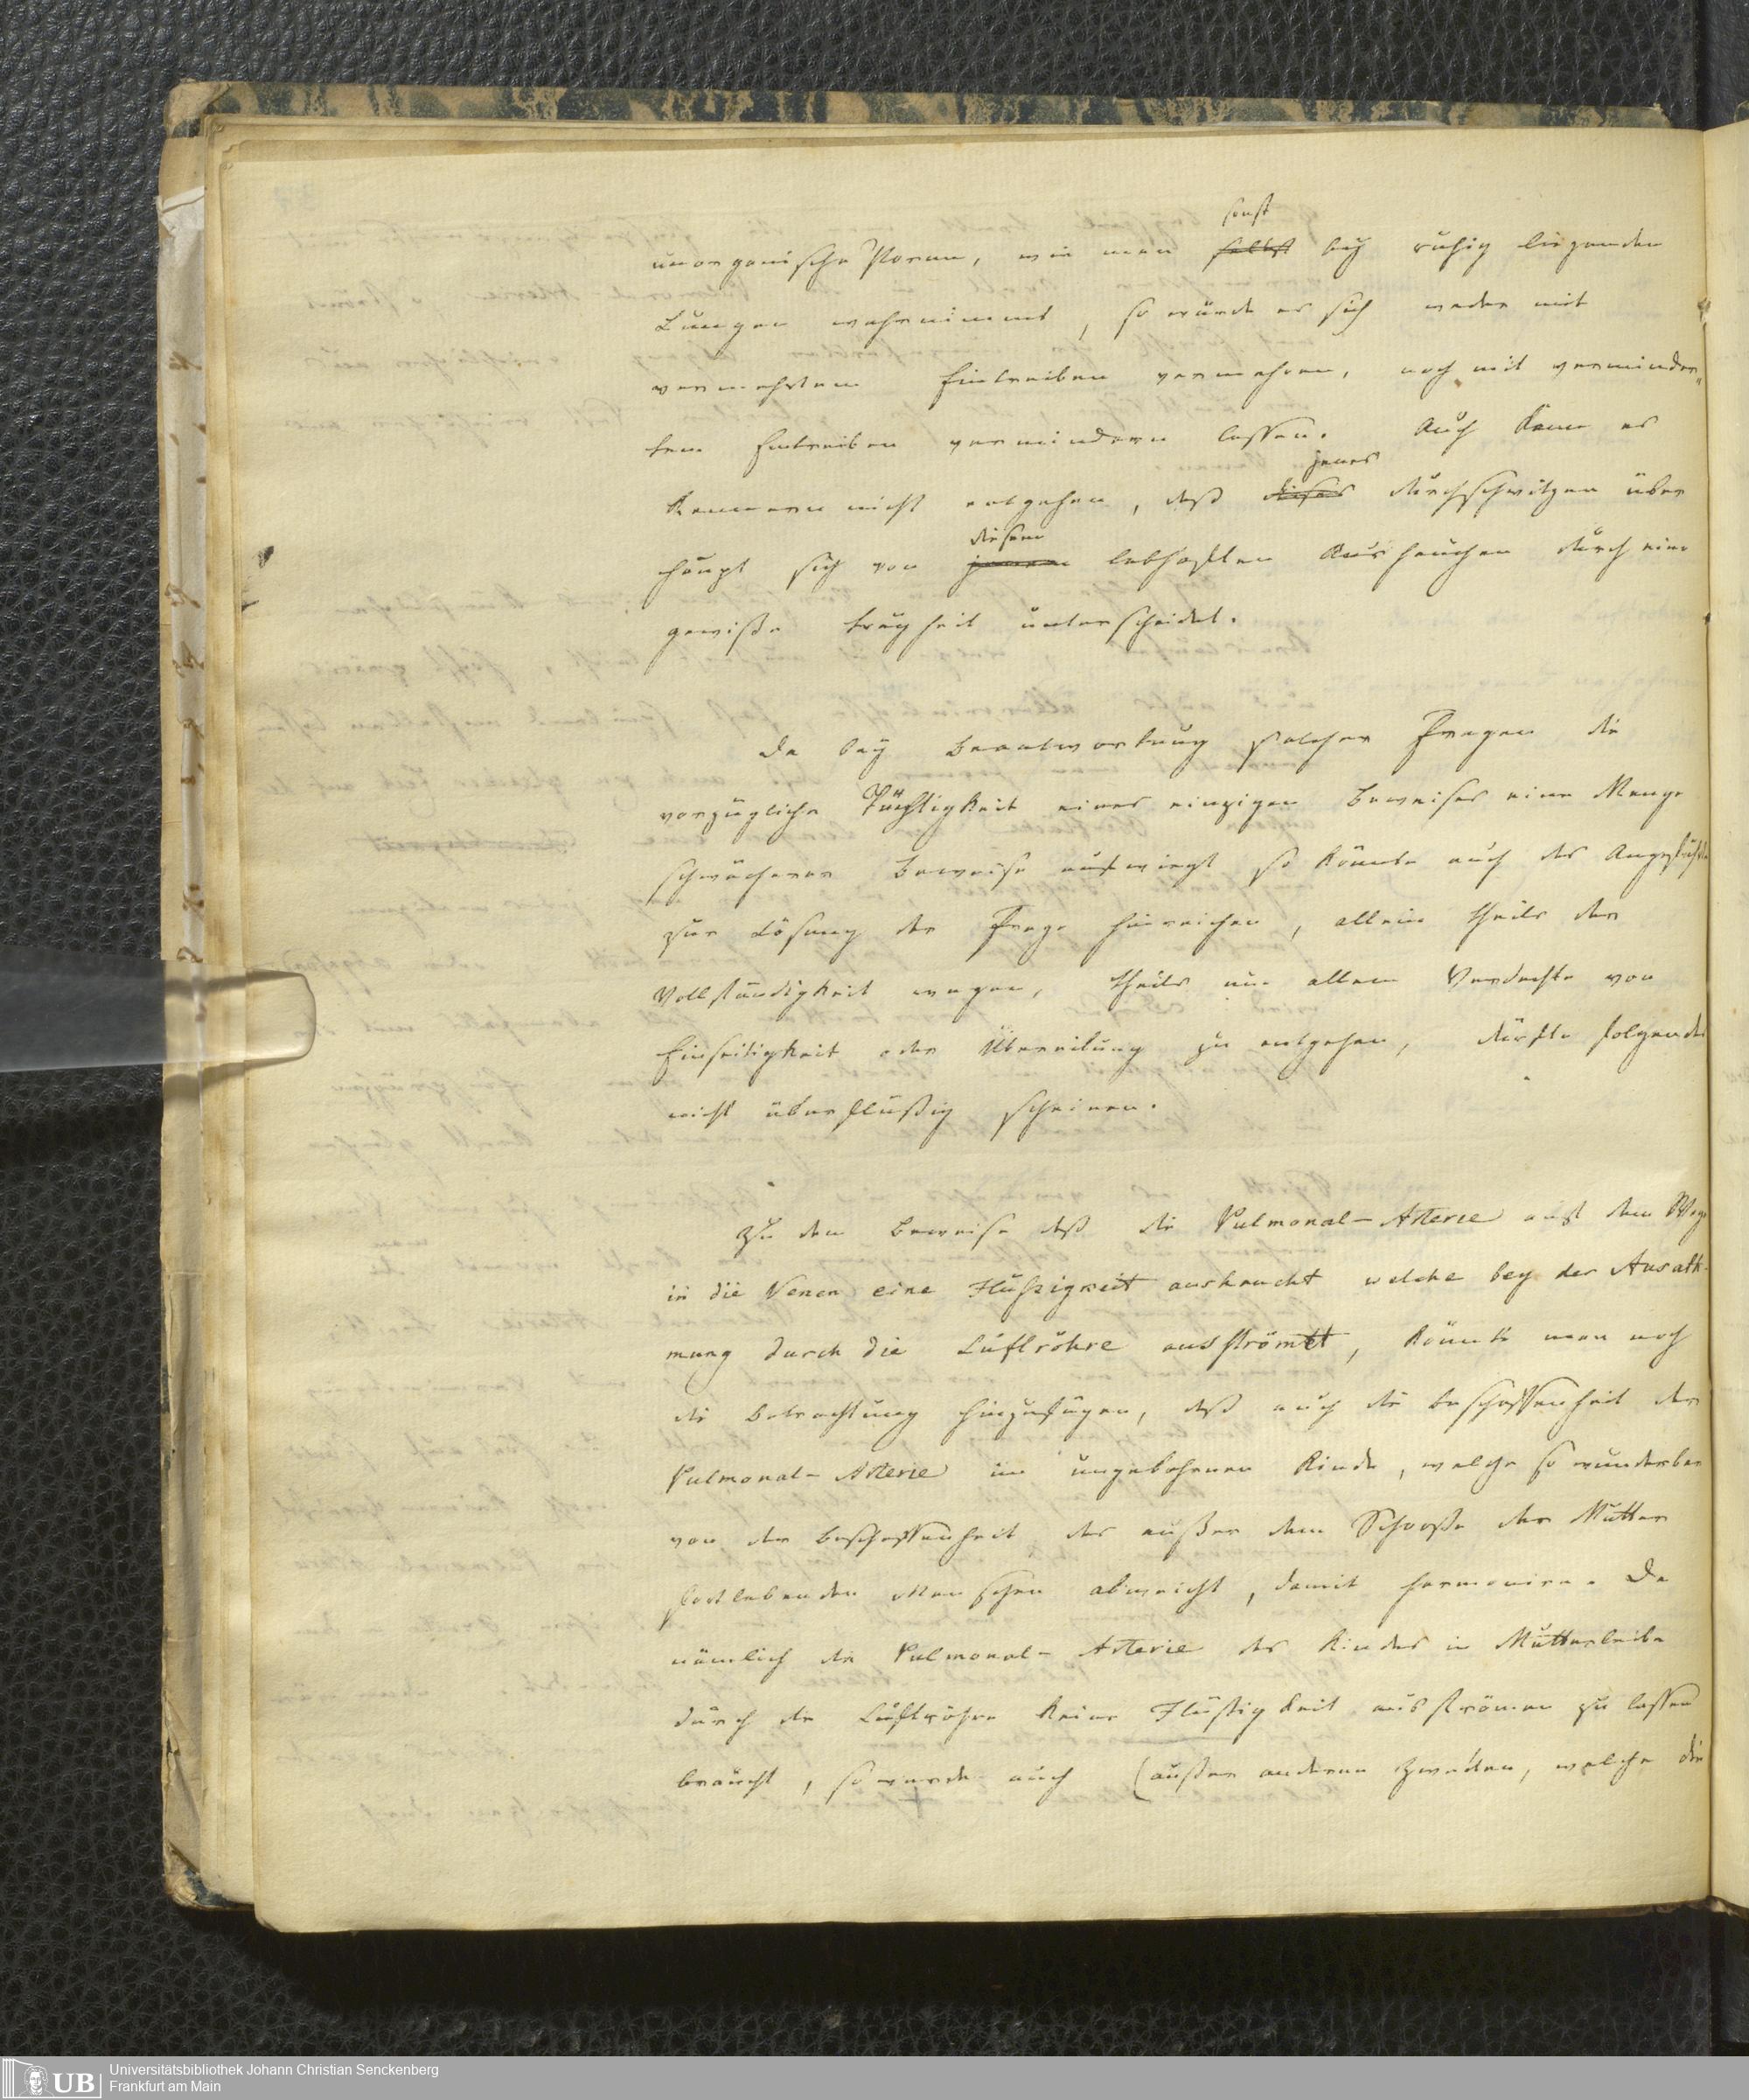 sonst
unorganische Poren, wie man selbst bey ruhig liegenden
Lungen wahrnimmt, so würde es sich weder mit
vermehrtem Eintreiben vermehren, noch mit verminder„
tem Eintreiben vermindern lassen. Auch kann es
jenes
Kennern nicht entgehen, daß dieses durchschwitzen über
diesem
haupt sich von jenem lebhaften Aushauchen durch eine
gewiße trägheit unterscheidet.
Da bey Beantwortung solcher Fragen die
vorzügliche Tüchtigkeit eines einzigen Beweises eine Menge
schwächerer Beweise aufwiegt so könnte auch das Angeführte
zur Lösung der Frage hinreichen, allein theils der
Vollständigkeit wegen, theils um allem Verdachte von
Einseitigkeit oder Übereilung zu entgehen, dürfte folgendes
nicht überflüßig scheinen.
Zu dem Beweise daß die Pulmonal-Arterie auf dem Wege
in die Venen eine Flüßigkeit aushaucht welche bey der Ausath-
mung durch die Luftröhre ausströmtt, könnte man noch
die Betrachtung hinzufügen, daß auch die Beschaffenheit der
Pulmonal-Arterie im ungebohrnen Kinde, welche so wunderbar
von der Beschaffenheit des außer dem Schooße der Mutter
fortlebenden Menschen abweicht, damit harmonire. Da
nämlich die Pulmonal-Arterie des Kindes in Mutterleibe
durch die Luftröhre keine Flüßigkeit ausströmen zu lassen
braucht, so wurde auch (außer anderen Zwecken, welche die
UB
Universitätsbibliothek Johann Christian Senckenberg
Frankfurt am Main